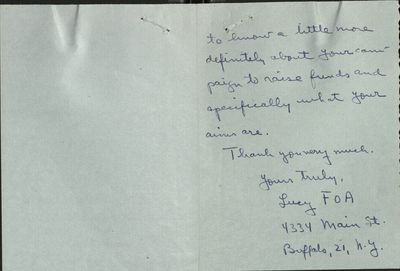 to know a little more
definitely about your cam-
paign to raise funds and
specifically what your
aims are.
Thank you very much.
Yours truly,
Lucy FOA
4334 Main St.
Buffalo, 21, N.Y.